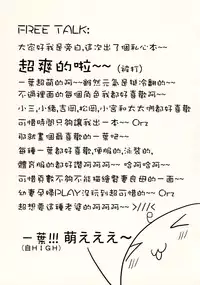 FREE TALK:
大家好我是旁白,這次出了個私心本~~
超爽的啦~~(被打)
一葉超萌的阿~~雖然元氣是挺冷翻的~~
不過裡面的每個角色我都好喜歡阿~~
小三,小緒,吉岡,松岡,小宮和太太們都好喜歡
可惜時間只夠讓我出一本~~ Orz
那就畫個最喜歡的一葉吧~~
每種一葉都好喜歡,便服的,泳裝的,
體育服的都好讚阿阿~~ 哈阿哈阿~~
可惜頁數不夠不能描繪賢妻良母的一面~~
幼妻孕婦PLAY沒玩到超可惜的~~ Orz
超想要這種老婆的阿阿阿~~ >////<
一葉!!! 萌えええ~
(自HIGH)